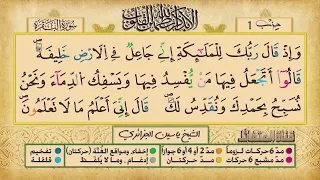 سورة البقرة
حزب 1
وَإِذْ قَالَ رَبُّكَ لِلْمَلَٰٓئِكَةِ إِنِّي جَاعِلٌ فِي اِلَارْضِ خَلِيفَةٗ
قَالُوٓاْ أَتَجْعَلُ فِيهَا مَنْ يُّفْسِدُ فِيهَا وَيَسْفِكُ اُلدِّمَآءَ وَنَحْنُ
نُسَبِّحُ بِحَمْدِكَ وَنُقَدِّسُ لَكَ قَالَ إِنِّيَ أَعْلَمُ مَا لَا تَعْلَمُونَ
الشيخ ياسين الجزائري
مدّ 6 حركات لزوماً مدّ 2 أو 4 أو 6 جوازاً إخفاء ومواقع الغنّة (حركتان) تفخيم
مدّ مشبع 6 حركات مدّ حركتان إدغام، وما لا يُلفظ قلقلة